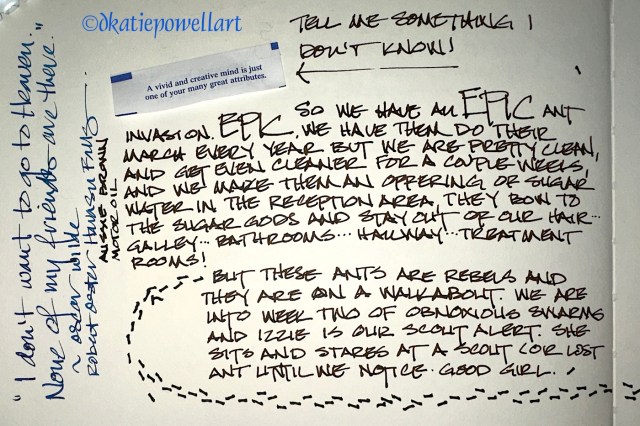 ©dkatiepowellart
TELL ME SOMETHING I
DON'T KNOW!
A vivid and creative mind is just
one of your many great attributes.
SO WE HAVE AN EPIC ANT
INVASION. EPIC. WE HAVE THEM DO THEIR
MARCH EVERY YEAR BUT WE ARE PRETTY CLEAN,
AND GET EVEN CLEANER FOR A COUPLE WEEKS,
AND WE MAKE THEM AN OFFERING OF SUGAR
WATER IN THE RECEPTION AREA. THEY BOW TO
THE SUGAR GODS AND STAY OUT OF OUR HAIR...
GALLEY... BATHROOMS... HALLWAY... TREATMENT
ROOMS!
BUT THESE ANTS ARE REBELS AND
THEY ARE ON A WALKABOUT. WE ARE
INTO WEEK TWO OF OBNOXIOUS SWARMS
AND IZZIE IS OUR SCOUT ALERT. SHE
SITS AND STARES AT A SCOUT (OR LOST
ANT UNTIL WE NOTICE. GOOD GIRL.
"I don't want to go to Heaven.
None of my friends are there."
~ oscar wilde
Robert Oster
AUSSIE BROWN
MOTOR OIL